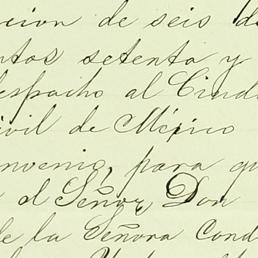 cion de seis de
ntos setenta y
espacho al Ciuda
ivil de México
nvenio, para qu
el Señor, Don
de la Señora Cond